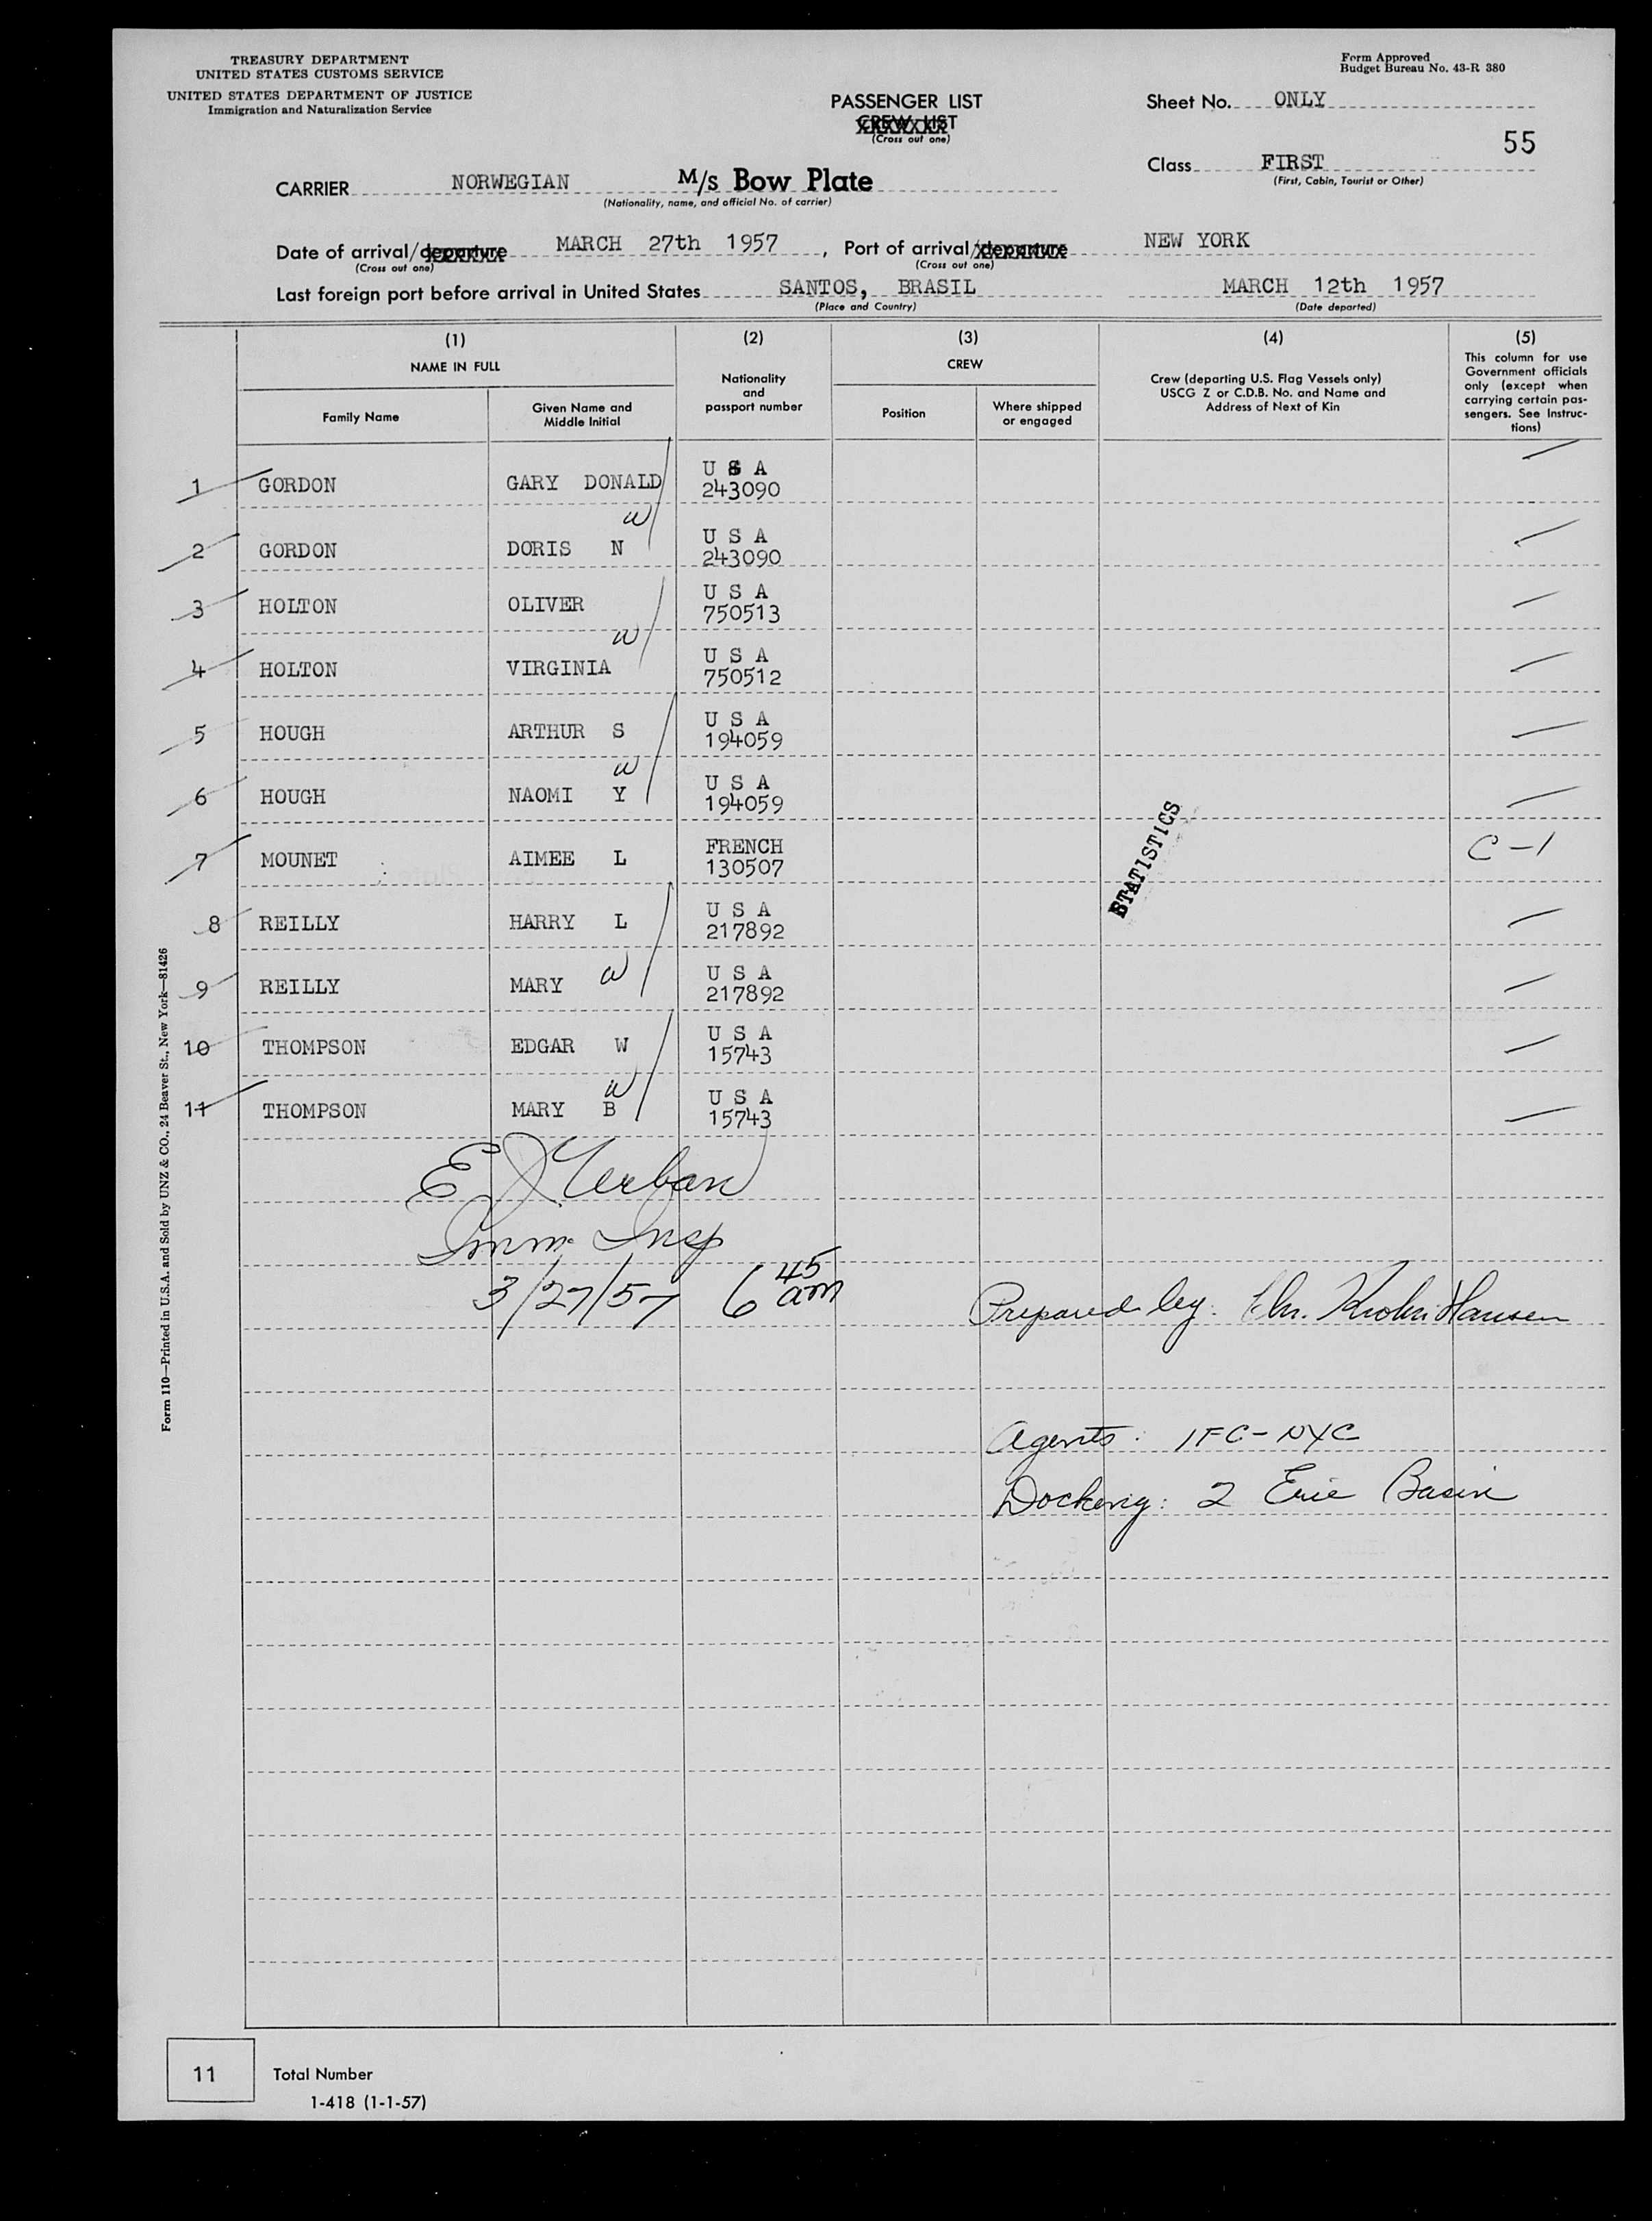 TREASURY DEPARTMENT
UNITED STATES CUSTOMS SERVICE
UNITED STATES DEPARTMENT OF JUSTICE
Immigration and Naturalization Service
Form Approved
Budget Bureau No. 43-R 380
PASSENGER LIST
CREW LIST
(Cross out one)
Sheet No. ONLY
55
Class FIRST
(First, Cabin, Tourist or Other)
CARRIER NORWEGIAN M/S Bow Plate
(Nationality, name, and official No. of carrier)
Date of arrival/departure MARCH 27th 1957, Port of arrival/departure NEW YORK
(Cross out one) (Cross out one)
Last foreign port before arrival in United States SANTOS, BRASIL MARCH 12th 1957
(Place and Country) (Date departed)
(1) (2) (3) (4) (5)
NAME IN FULL
Family Name
Given Name and
Middle Initial
Nationality
and
passport number
CREW
Position
Where shipped
or engaged
Crew (departing U.S. Flag Vessels only)
USCG Z or C.D.B. No. and Name and
Address of Next of Kin
This column for use
Government officials
only (except when
carrying certain pas-
sengers. See Instruc-
tions)
1 GORDON GARY DONALD U S A
243090
W
2 GORDON DORIS N U S A
243090
3 HOLTON OLIVER U S A
750513
W
4 HOLTON VIRGINIA U S A
750512
5 HOUGH ARTHUR S U S A
194059
W
6 HOUGH NAOMI Y U S A
194059
7 MOUNET AIMEE L FRENCH C-1
130507
STATISTICS
8 REILLY HARRY L U S A
217892
9 REILLY MARY W U S A
217892
10 THOMPSON EDGAR W U S A
15743
W
11 THOMPSON MARY B U S A
15743
E J Urban
Imm. Insp
3/27/57 6 45 am
Prepared by: Chr. Krohn Hansen
Agents: IFC-NYC
Docking: 2 Erie Basin
Form 110—Printed in U.S.A. and Sold by UNZ & CO., 24 Beaver St., New York—81426
11 Total Number
1-418 (1-1-57)